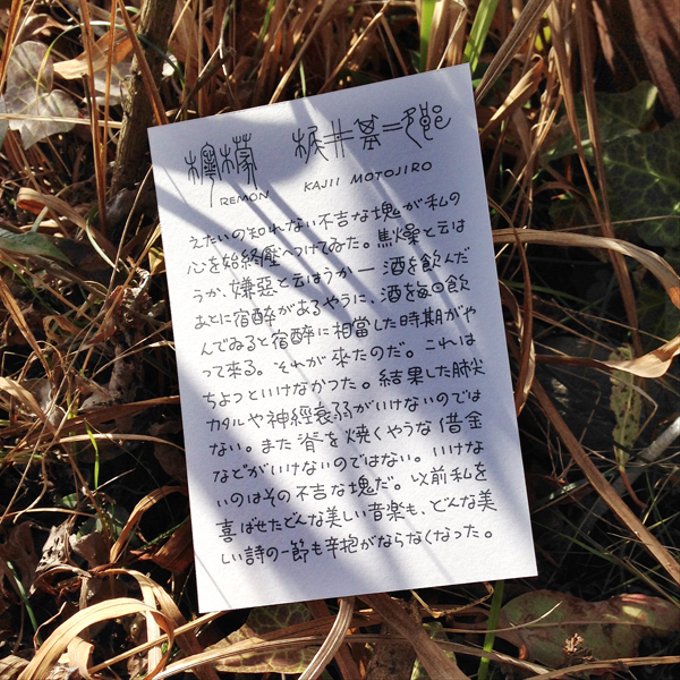 檸檬 梶井基二郎
REMON KAJII MOTOJIRO
えたいの知れない不吉な塊が私の
心を始終壓へつけてゐた。焦燥と云は
うか、嫌惡と云はうか―酒を飲んだ
あとに宿醉があるやうに、酒を毎日飲
んでゐると宿醉に相當した時期がや
って來る。それが來たのだ。これは
ちょっといけなかつた。結果した肺尖
カタルや神經衰弱がいけないのでは
ない。また脊を焼くやうな借金
などがいけないのではない。いけな
いのはその不吉な塊だ。以前私を
喜ばせたどんな美しい音楽も、どんな美
しい詩の一節も辛抱がならなくなった。